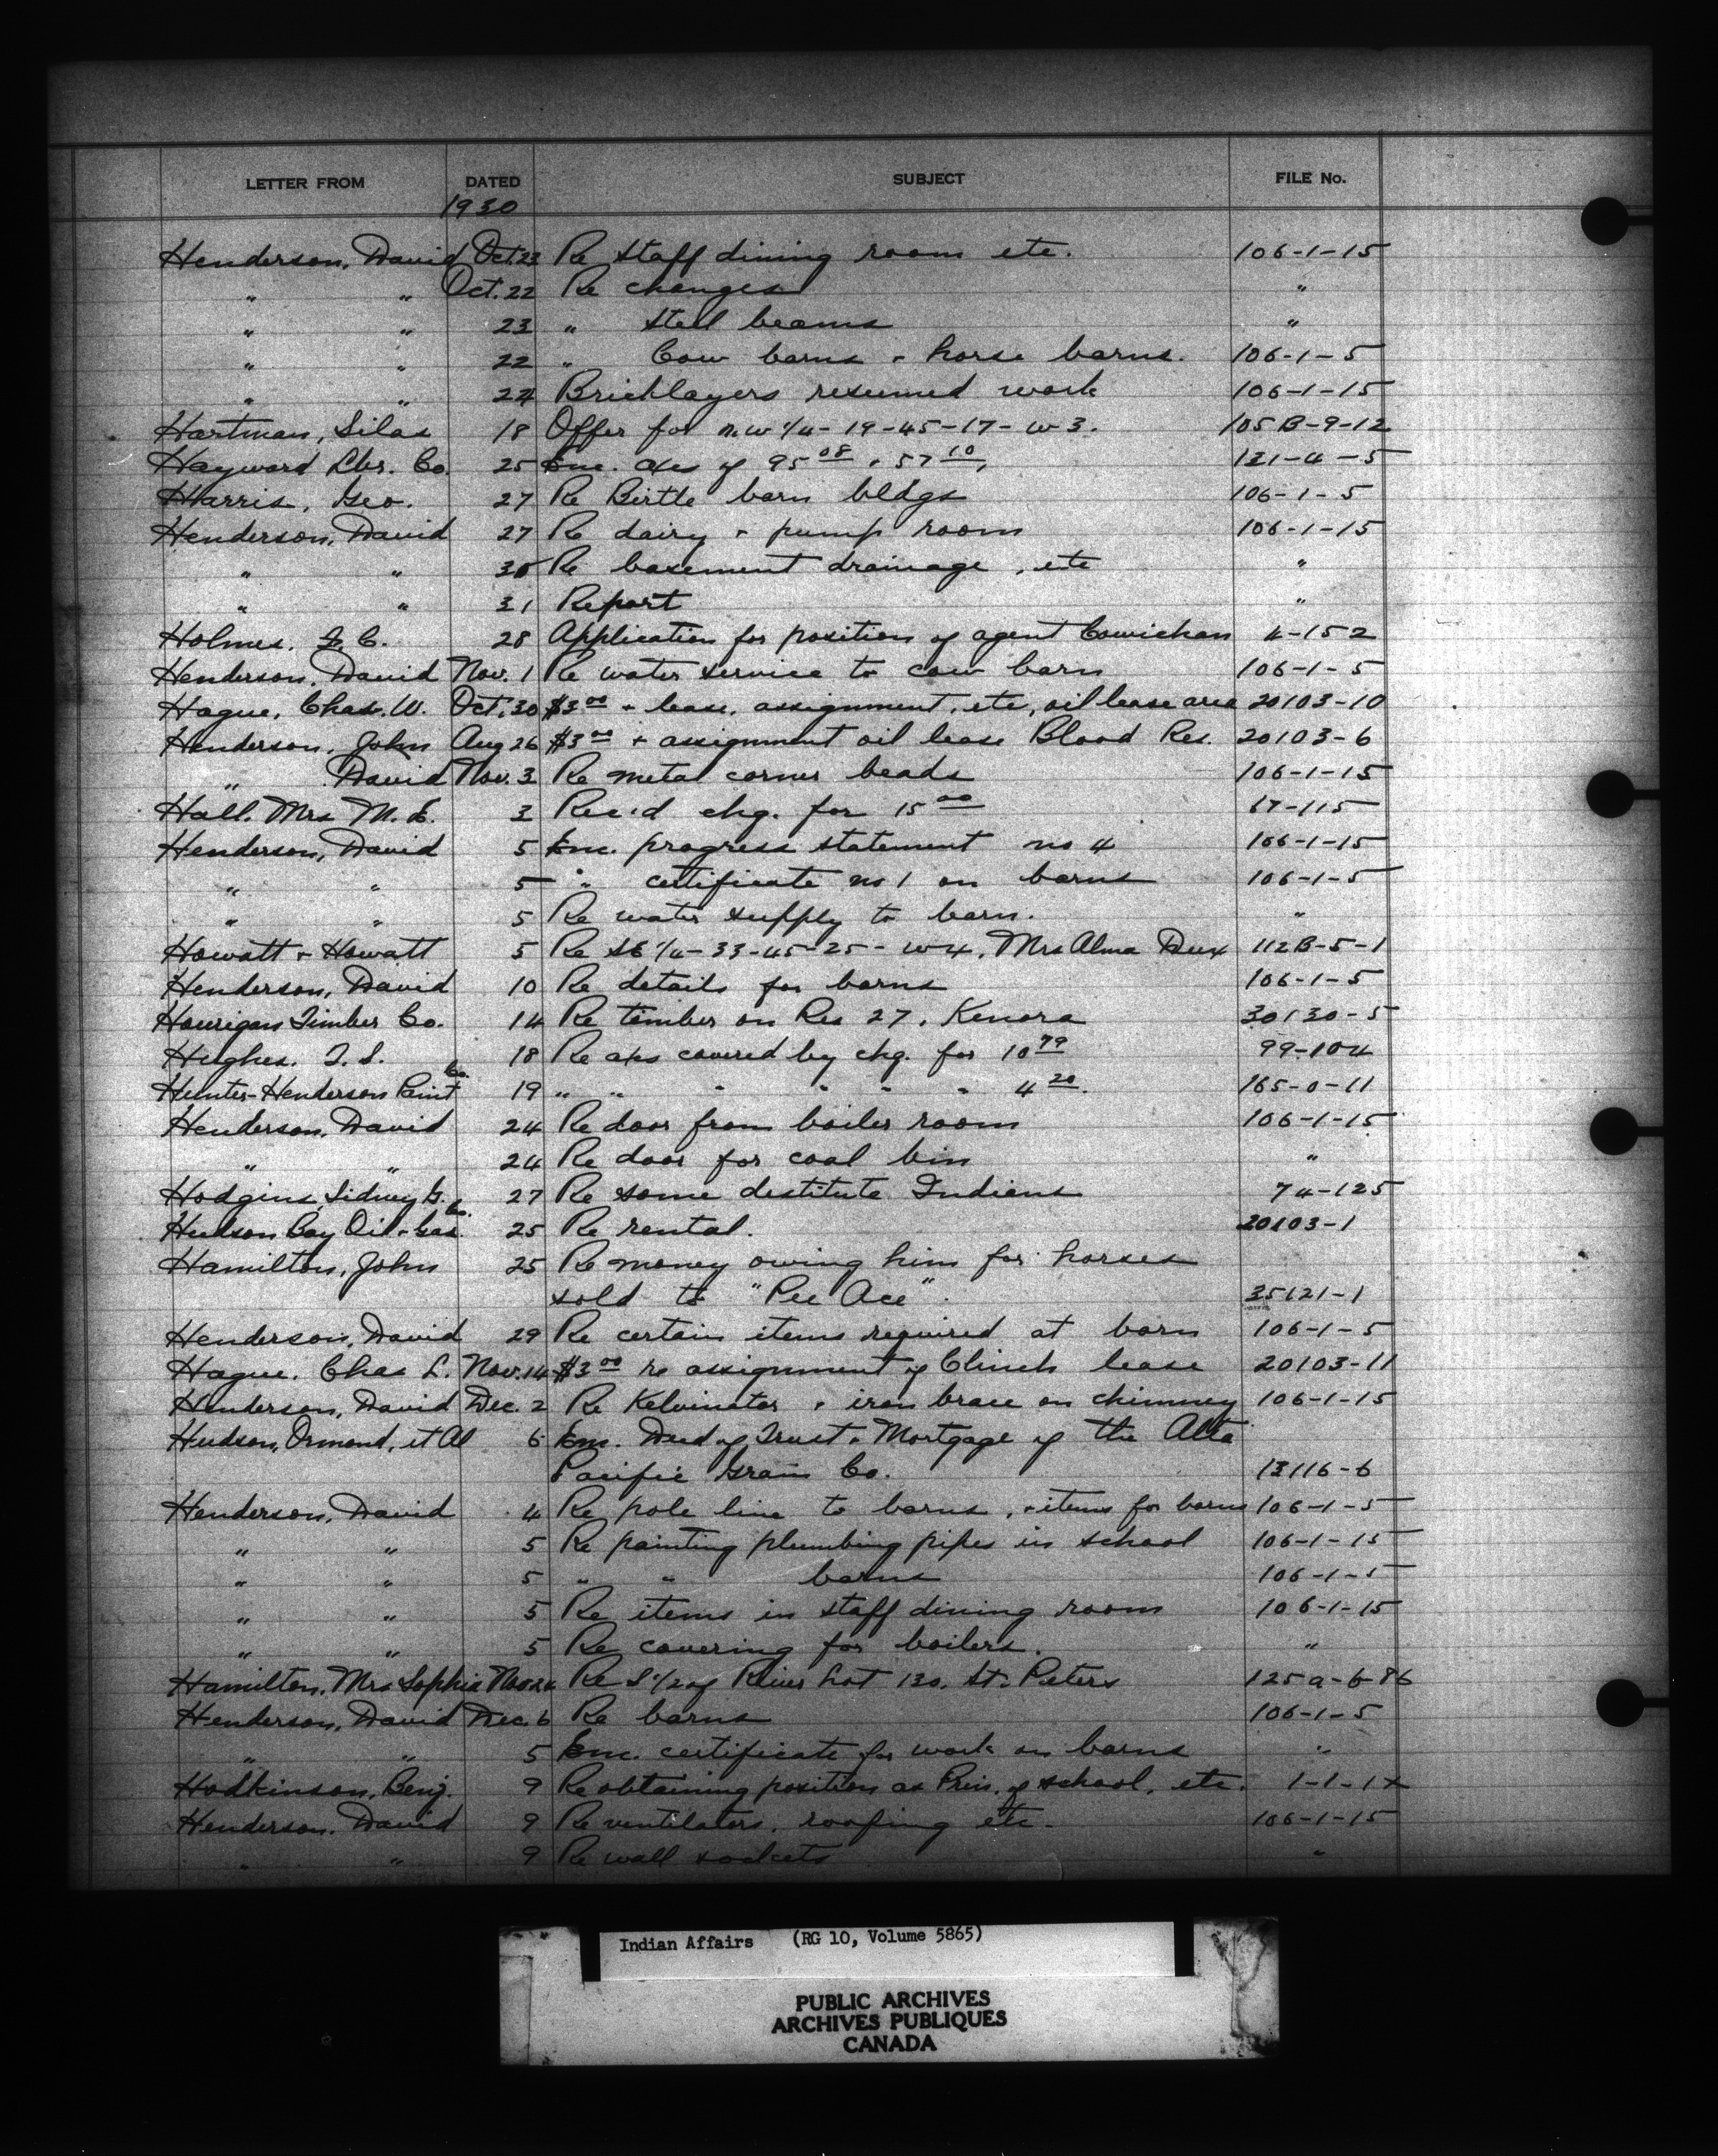 LETTER FROM DATED SUBJECT FILE No.
1930
Henderson, David Oct. 23 Re staff dining room etc. 106-1-15
" " Oct. 22 Re changes "
" " 23 " steel beams "
" " 22 " Cow barns + horse barns. 106-1-5
" " 24 Bricklayers resumed work 106-1-15
Hartman, Silas 18 Offer for n.w 1/4-19-45-17-w3. 105B-9-12
Hayward Lbr. Co. 25 Enc. a/cs of 95 08 + 57 10, 121-4-5
Harris, Geo. 27 Re Birtle barn bldgs 106-1-5
Henderson, David 27 Re dairy + pump room 106-1-15
" " 30 Re basement drainage, etc "
" " 31 Report "
Holmes, F. C. 28 Application for position of agent Cowichan 4-152
Henderson, David Nov. 1 Re water service to cow barn 106-1-5
Hague, Chas. W. Oct. 30 $3 00 + lease, assignment, etc, oil lease area 20103-10
Henderson, John Aug 26 $3 00 + assignment oil lease Blood Res. 20103-6
" David Nov. 3 Re metal corner beads 106-1-15
Hall, Mrs M. E. 3 Rec'd chq. for 15 00 67-115
Henderson, David 5 Enc. progress statement no 4 106-1-15
" " 5 " certificate no 1 on barns 106-1-5
" " 5 Re water supply to barn. "
Howatt + Howatt 5 Re SE 1/4-33-45-25-w4, Mrs Alma Dux 112B-5-1
Henderson, David 10 Re details for barns 106-1-5
Hourigan Timber Co. 14 Re timber on Res 27, Kenora 30130-5
Hughes. T. S. 18 Re a/cs covered by chq. for 10 79 99-104
Hunter-Henderson Paint Co. 19 " " " " " " 4 20. 165-0-11
Henderson, David 24 Re door from boiler room 106-1-15
" " 24 Re door for coal bin "
Hodgins, Sidney G. 27 Re some destitute Indians 74-125
Hudson Bay Oil + Gas Co. 25 Re rental. 20103-1
Hamilton, John 25 Re money owing him for horses
sold to "Pee Ace". 35121-1
Henderson, David 29 Re certain items required at barn 106-1-5
Hague. Chas L. Nov. 14 $3 00 re assignment of Clinch lease 20103-11
Henderson, David Dec. 2 Re Kelvinator + iron brace on chimney 106-1-15
Hudson, Ormond, et Al 6 Enc. Deed of Trust + Mortgage of the Alta
Pacific Grain Co. 13116-6
Henderson, David 4 Re pole line to barns, + items for barns 106-1-5
" " 5 Re painting plumbing pipes in school 106-1-15
" " 5 " " barns 106-1-5
" " 5 Re items in staff dining room 106-1-15
" " 5 Re covering for boilers. "
Hamilton, Mrs Sophia Nov 24 Re S 1/2 of River Lot 130, St. Peters 125a-6-86
Henderson, David Dec. 6 Re barns 106-1-5
" " 5 Enc. certificate for work on barns "
Hodkinson, Benj. 9 Re obtaining position as Prin. of school, etc. 1-1-1x
Henderson. David 9 Re ventilators, roofing etc. 106-1-15
" " 9 Re wall sockets "
Indian Affairs (RG 10, Volume 5865)
PUBLIC ARCHIVES
ARCHIVES PUBLIQUES
CANADA